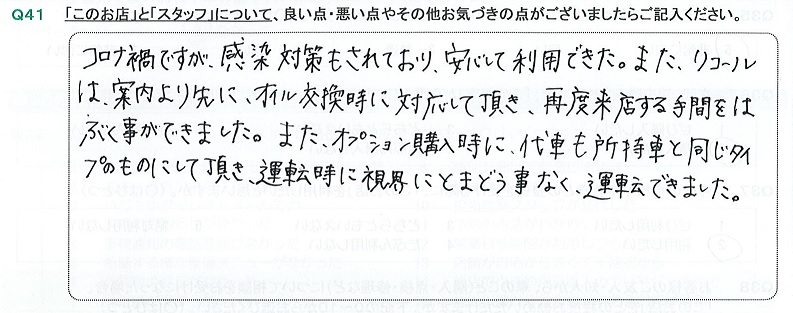 Q41 「このお店」と「スタッフ」について、良い点・悪い点やその他お気づきの点がございましたらご記入ください。
コロナ禍ですが、感染対策もされており、安心して利用できた。また、リコール
は、案内より先に、オイル交換時に対応して頂き、再度来店する手間をは
ぶく事ができました。また、オプション購入時に、代車も所持車と同じタイ
プのものにして頂き、運転時に視界にとまどう事なく、運転できました。